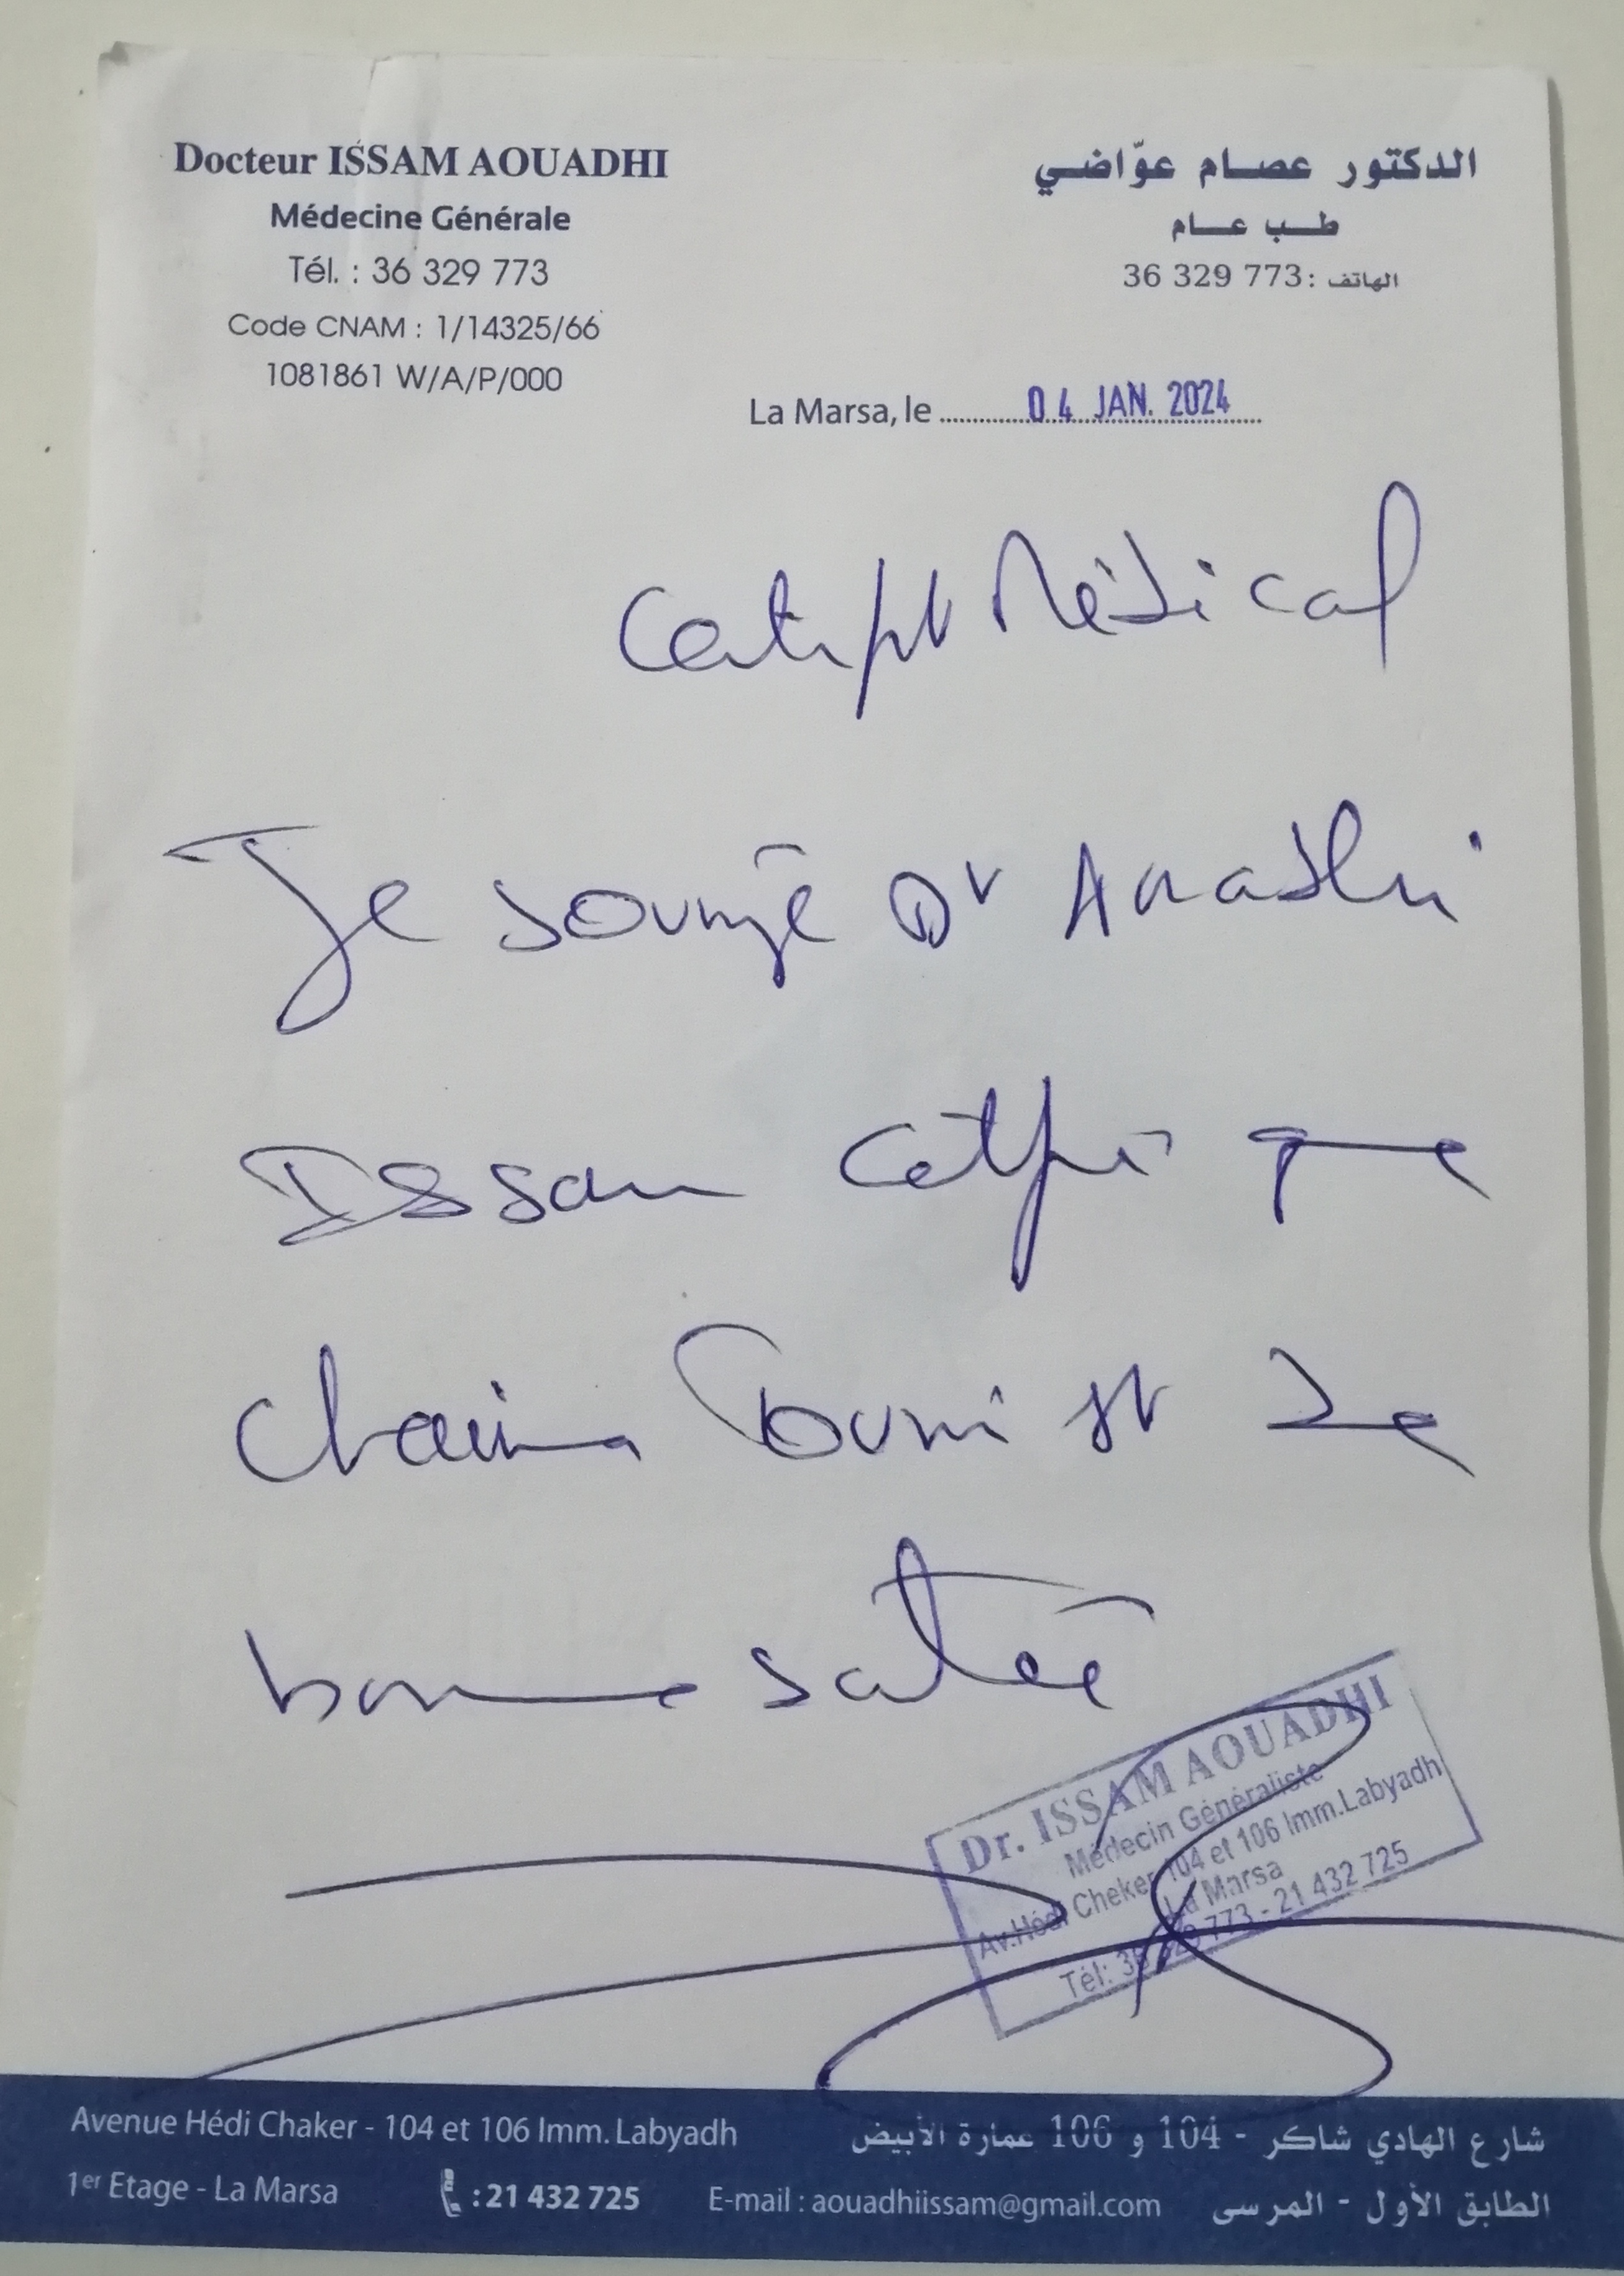 Docteur ISSAM AOUADHI
Médecine Générale
Tél. : 36 329 773
Code CNAM : 1/14325/66
1081861 W/A/P/000
الدكتور عصام عوّاضي
طب عام
الهاتف : 36 329 773
La Marsa, le 04 JAN. 2024
Certificat Médical
Je soussigné Dr Aouadhi
Issam certifie que
Chaima est de
bonne santé
Dr. ISSAM AOUADHI
Médecin Généraliste
Av.Hédi Cheker 104 et 106 Imm.Labyadh
La Marsa
Tél: 36 329 773 - 21 432 725
Avenue Hédi Chaker - 104 et 106 Imm. Labyadh
1er Etage - La Marsa : 21 432 725 E-mail : aouadhiissam@gmail.com
شارع الهادي شاكر - 104 و 106 عمارة الأبيض
الطابق الأول - المرسى